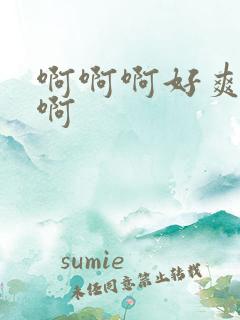 啊啊啊好爽
啊
sumie
未经同意禁止转载